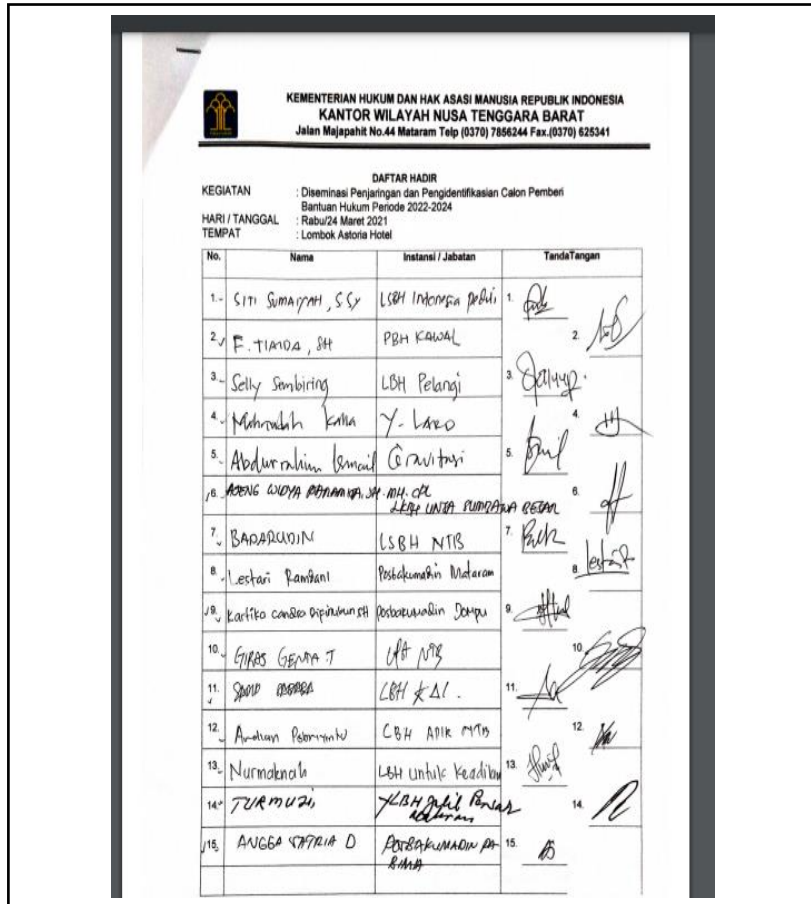 KEMENTERIAN HUKUM DAN HAK ASASI MANUSIA REPUBLIK INDONESIA
KANTOR WILAYAH NUSA TENGGARA BARAT
Jalan Majapahit No.44 Mataram Telp (0370) 7856244 Fax.(0370) 625341
DAFTAR HADIR
KEGIATAN : Diseminasi Penjaringan dan Pengidentifikasian Calon Pemberi
Bantuan Hukum Periode 2022-2024
HARI / TANGGAL : Rabu/24 Maret 2021
TEMPAT : Lombok Astoria Hotel
No. Nama Instansi / Jabatan TandaTangan
1. SITI SUMAIYAH, S.Sy LSBH Indonesia Peduli 1.
2. F. TIANDA, SH PBH KAWAL 2.
3. Selly Sembiring LBH Pelangi 3.
4. Mahmudah Kalla Y. LARD 4.
5. Abdurrahim Ismail Gravitasi 5.
6. AJENG WIDYA PARAMITA, SH. MH. CPL 6.
LKBH UNSA SUMBAWA BESAR
7. BADARUDIN LSBH NTB 7.
8. Lestari Ramdani Posbakumadin Mataram 8. Lestari R
9. Kartika Candra SH Posbakumadin Dompu 9.
10. GIRAS GENTA T NTB 10.
11. LBH KAI. 11.
12. LBH APIK NTB 12.
13. Nurmaknah LBH Untuk Keadilan 13.
14. TURMUZI, YLBH 14.
Mataram
15. ANGGA SATRIA D POSBAKUMADIN PA 15.
BIMA